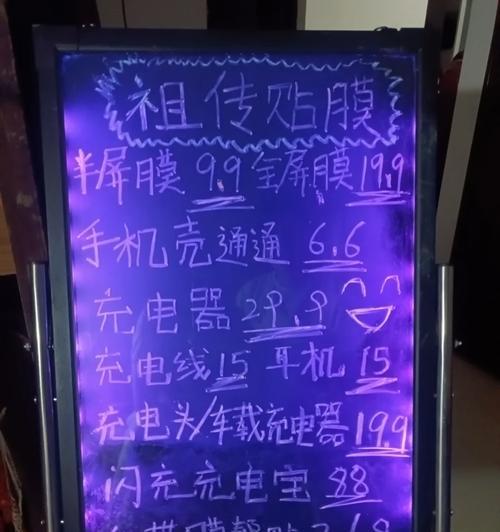 祖传贴膜
半屏膜 9.9 全屏膜 19.9
手机壳通通 6.6
充电器 29.9
充电线 15 耳机 15
充电头/车载充电器 19.9
闪充充电宝 88